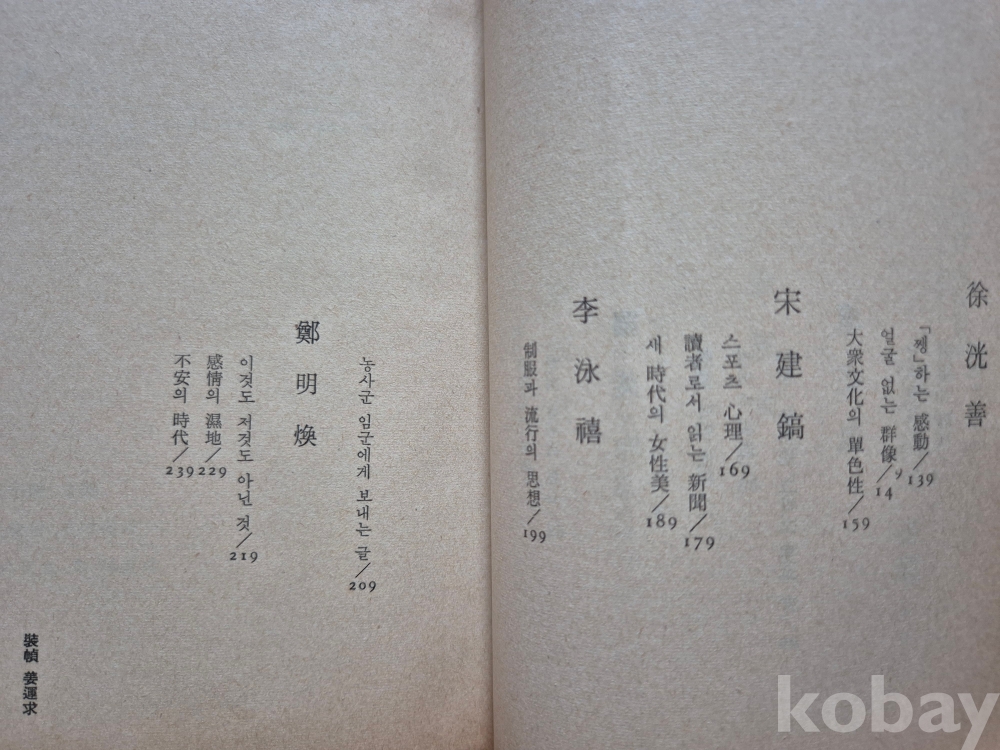 徐洸善
「쩽」하는 感動/139
얼굴 없는 群像/149
大衆文化의 單色性/159
宋建鎬
스포츠 心理/169
讀者로서 읽는 新聞/179
새 時代의 女性美/189
李泳禧
制服과 流行의 思想/199
농사군 임군에게 보내는 글/209
鄭明煥
이것도 저것도 아닌 것/219
感情의 濕地/229
不安의 時代/239
裝幀 姜運求
kobay